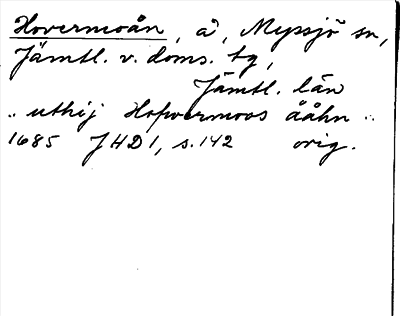 Hovermoån, å, Myssjö sn,
Jämtl. v. doms. tg,
Jämtl. län
"uthij Hofwermoos ååhn"
1685 JHD 1, s. 142 orig.